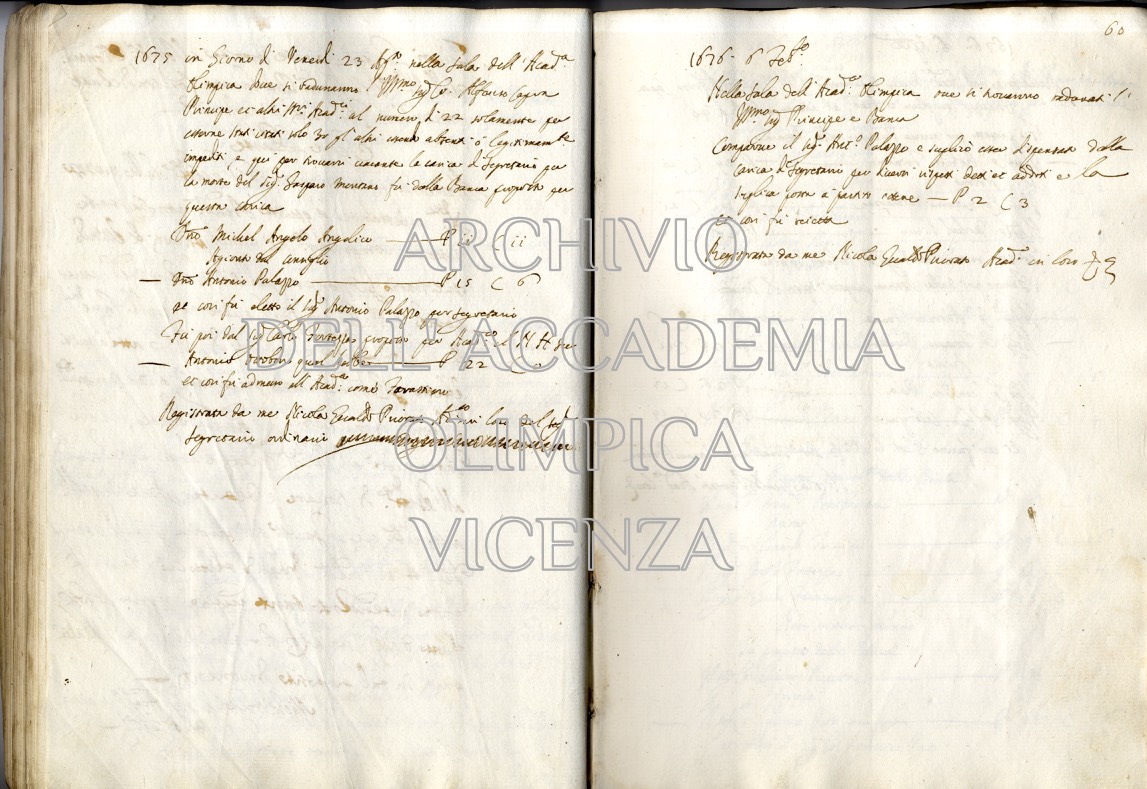 1675 in Giorno di Venerdì 23 Ag.to nella sala dell'Acad.a
Olimpica dove si radunarono l'Ill.mo sig.r Co. Alfonso
Principe et altri SS.ri Acad.ci al numero di 22 solamente per
esserne stati citati solo 30 gl'altri essend absenti ò legitimam.te
impediti, e qui per trovarsi vacante la carica di Segretario per
la morte del Sig.r Gasparo Montano fù dalla Banca proposto per
questa carica
D.no Michel Angelo Angelico — P 11 C 11
Agionta del conseglio
— D.no Antonio Palazzo — P 15 C 6
et così fù eletto il Sig.r Antonio Palazzo per segretario
Fù poi dal Sig.r proposto per Acad.co
— Antonio — P 22 C
et così fù admesso all'Acad.a come
Registrata da me Nicola Gualdo Priorato Ac.co in loco del Sig.r
Segretario ordinario
60
1676. 6 Feb.o
Nella Sala dell'Acad.a Olimpica ove si trovarono radunati l'
Ill.mo Sig.r Principe e Banca
Comparve il Sig.r Ant.o Palazzo e supplicò esser dispensato dalla
carica di Segretario per diversi rispetti detti et addoti e la
suplica posta à partito ottene — P 2 C 3
et così fù reietta
Registrata da me Nicola Gualdo Priorato Acad.co in loco
ARCHIVIO
DELL'ACCADEMIA
OLIMPICA
VICENZA